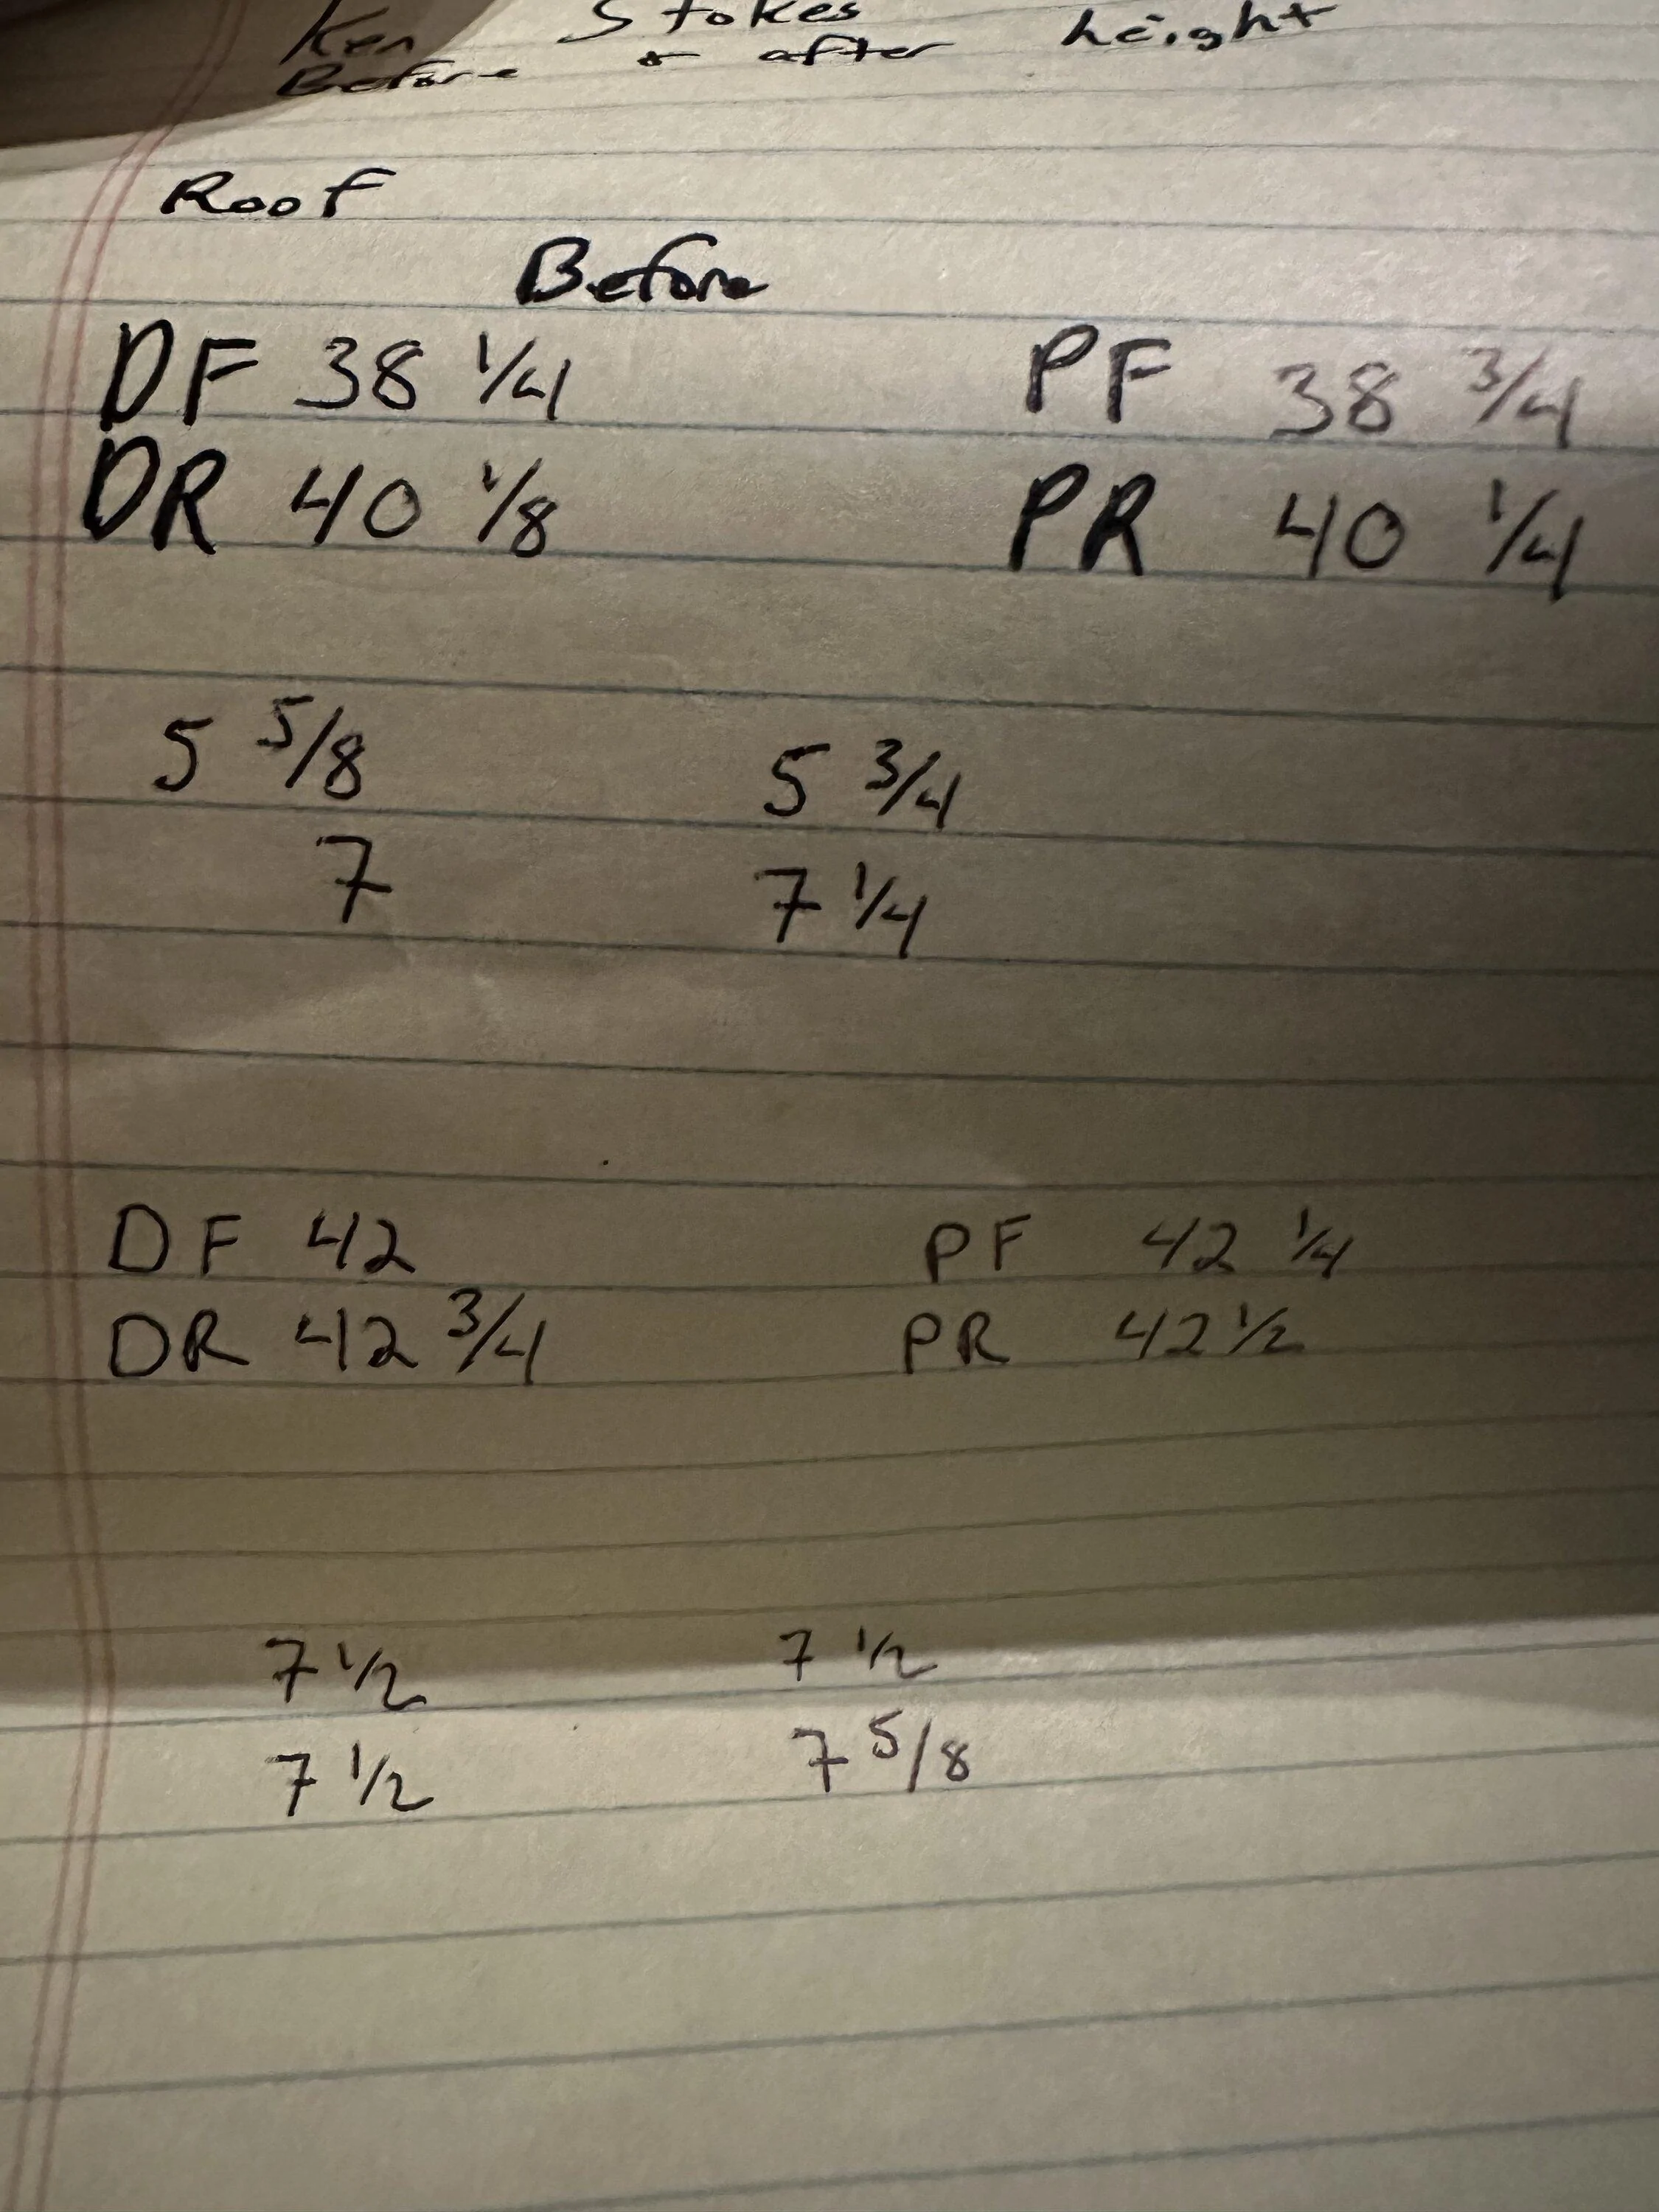 Ken Stokes
Before & after height
Roof
Before
DF 38 1/4 PF 38 3/4
DR 40 1/8 PR 40 1/4
5 5/8 5 3/4
7 7 1/4
DF 42 PF 42 1/4
DR 42 3/4 PR 42 1/2
7 1/2 7 1/2
7 1/2 7 5/8